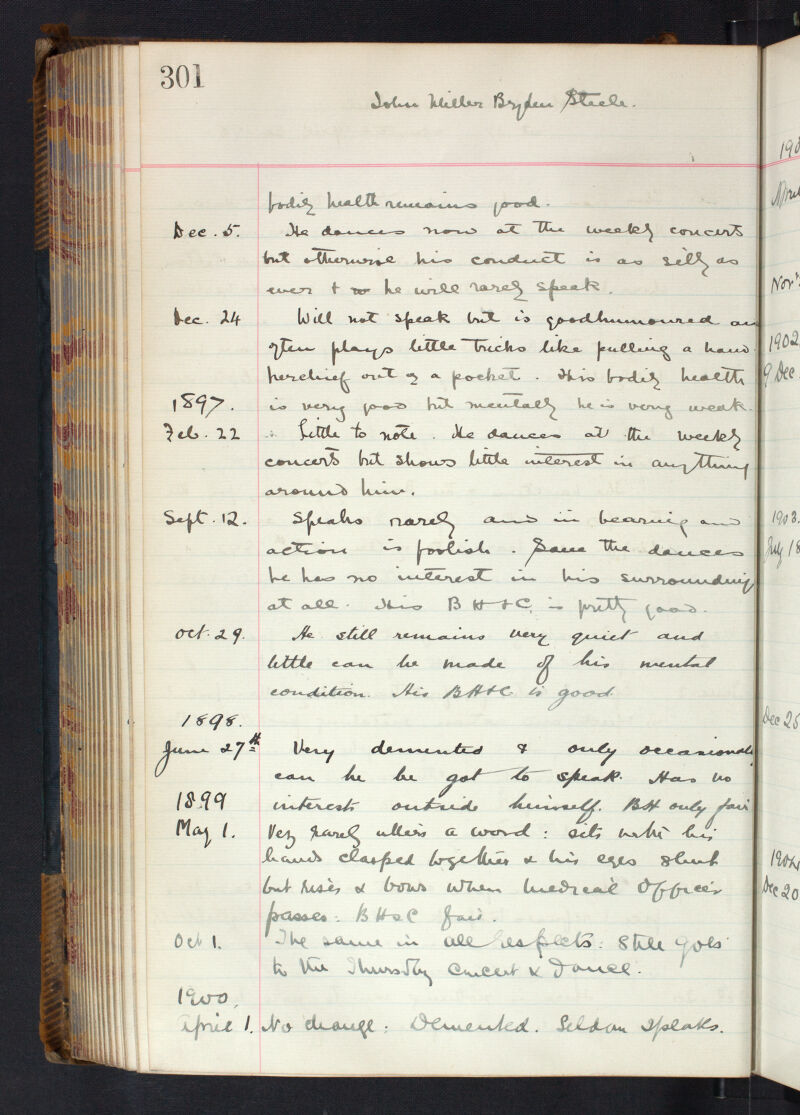 301
John Miller Bryden Steele.
bodily health remains good.
Dec. 5. He dances now at the weekly concerts
but otherwise his conduct is as silly as
ever & he will rarely speak.
Dec. 24 Will not speak but is goodhumoured an
often plays little tricks like pulling a hand
kerchief out of a pocket. His bodily health
1897. is very good but mentally he is very weak.
Feb. 22 Little to note. He dances at the weekly
concerts but shows little interest in anything
around him.
Sept. 12. Speaks rarely and in bearing and
action is foolish. Save the dances
he has no interest in his surroundings
at all. His BH&C. is pretty good.
Oct. 29. He still remains very quiet and
little can be made of his mental
condition. His BH&C is good
1898.
June 27th Very demented & only occasionally
can he be got to speak. Has no
1899 interests outside himself. BH only fair
May 1. Very rarely utters a word: sits with his
hands clasped together & his eyes shut
but rises & bows when Medical Officer
passes: BH&C fair.
Oct 1. The same in all respects: Still goes
to the Thursday Concert & Dance.
1900.
April 1. No change: Demented. Seldom speaks.
190
April
Nov
1902
9 Dec.
1903.
July 18
Dec 25
1904
Dec 20